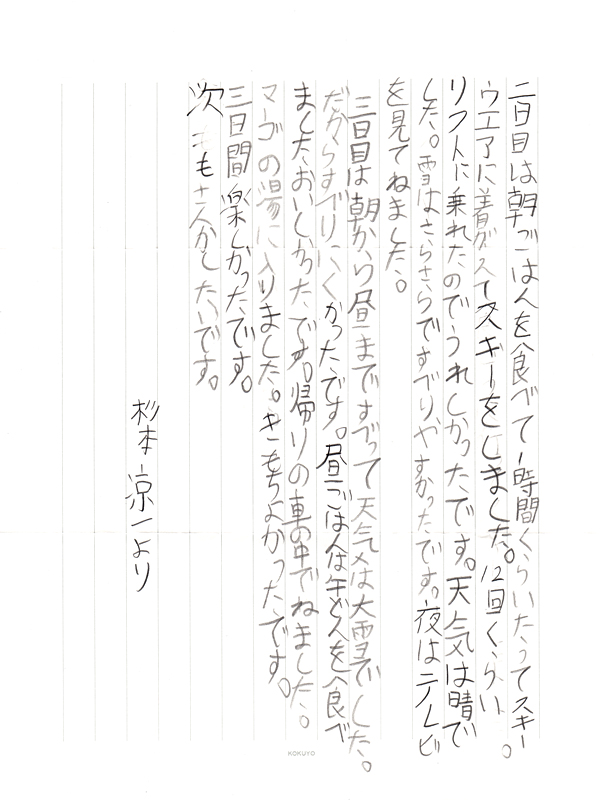 二日目は朝ごはんを食べて一時間くらいたってスキー
ウエアに着がえてスキーをしました。12回くらい
リフトに乗れたのでうれしかったです。天気は晴で
した。雪はさらさらですべりやすかったです。夜はテレビ
を見てねました。
三日目は朝から昼まですべって天気は大雪でした。
だからすべりにくかったです。昼ごはんは牛どんを食べ
ましたおいしかったです。帰りの車の中でねました。
マゴの湯に入りました。きもちよかったです。
三日間楽しかったです。
次もさんかしたいです。
杉本涼一より
KOKUYO